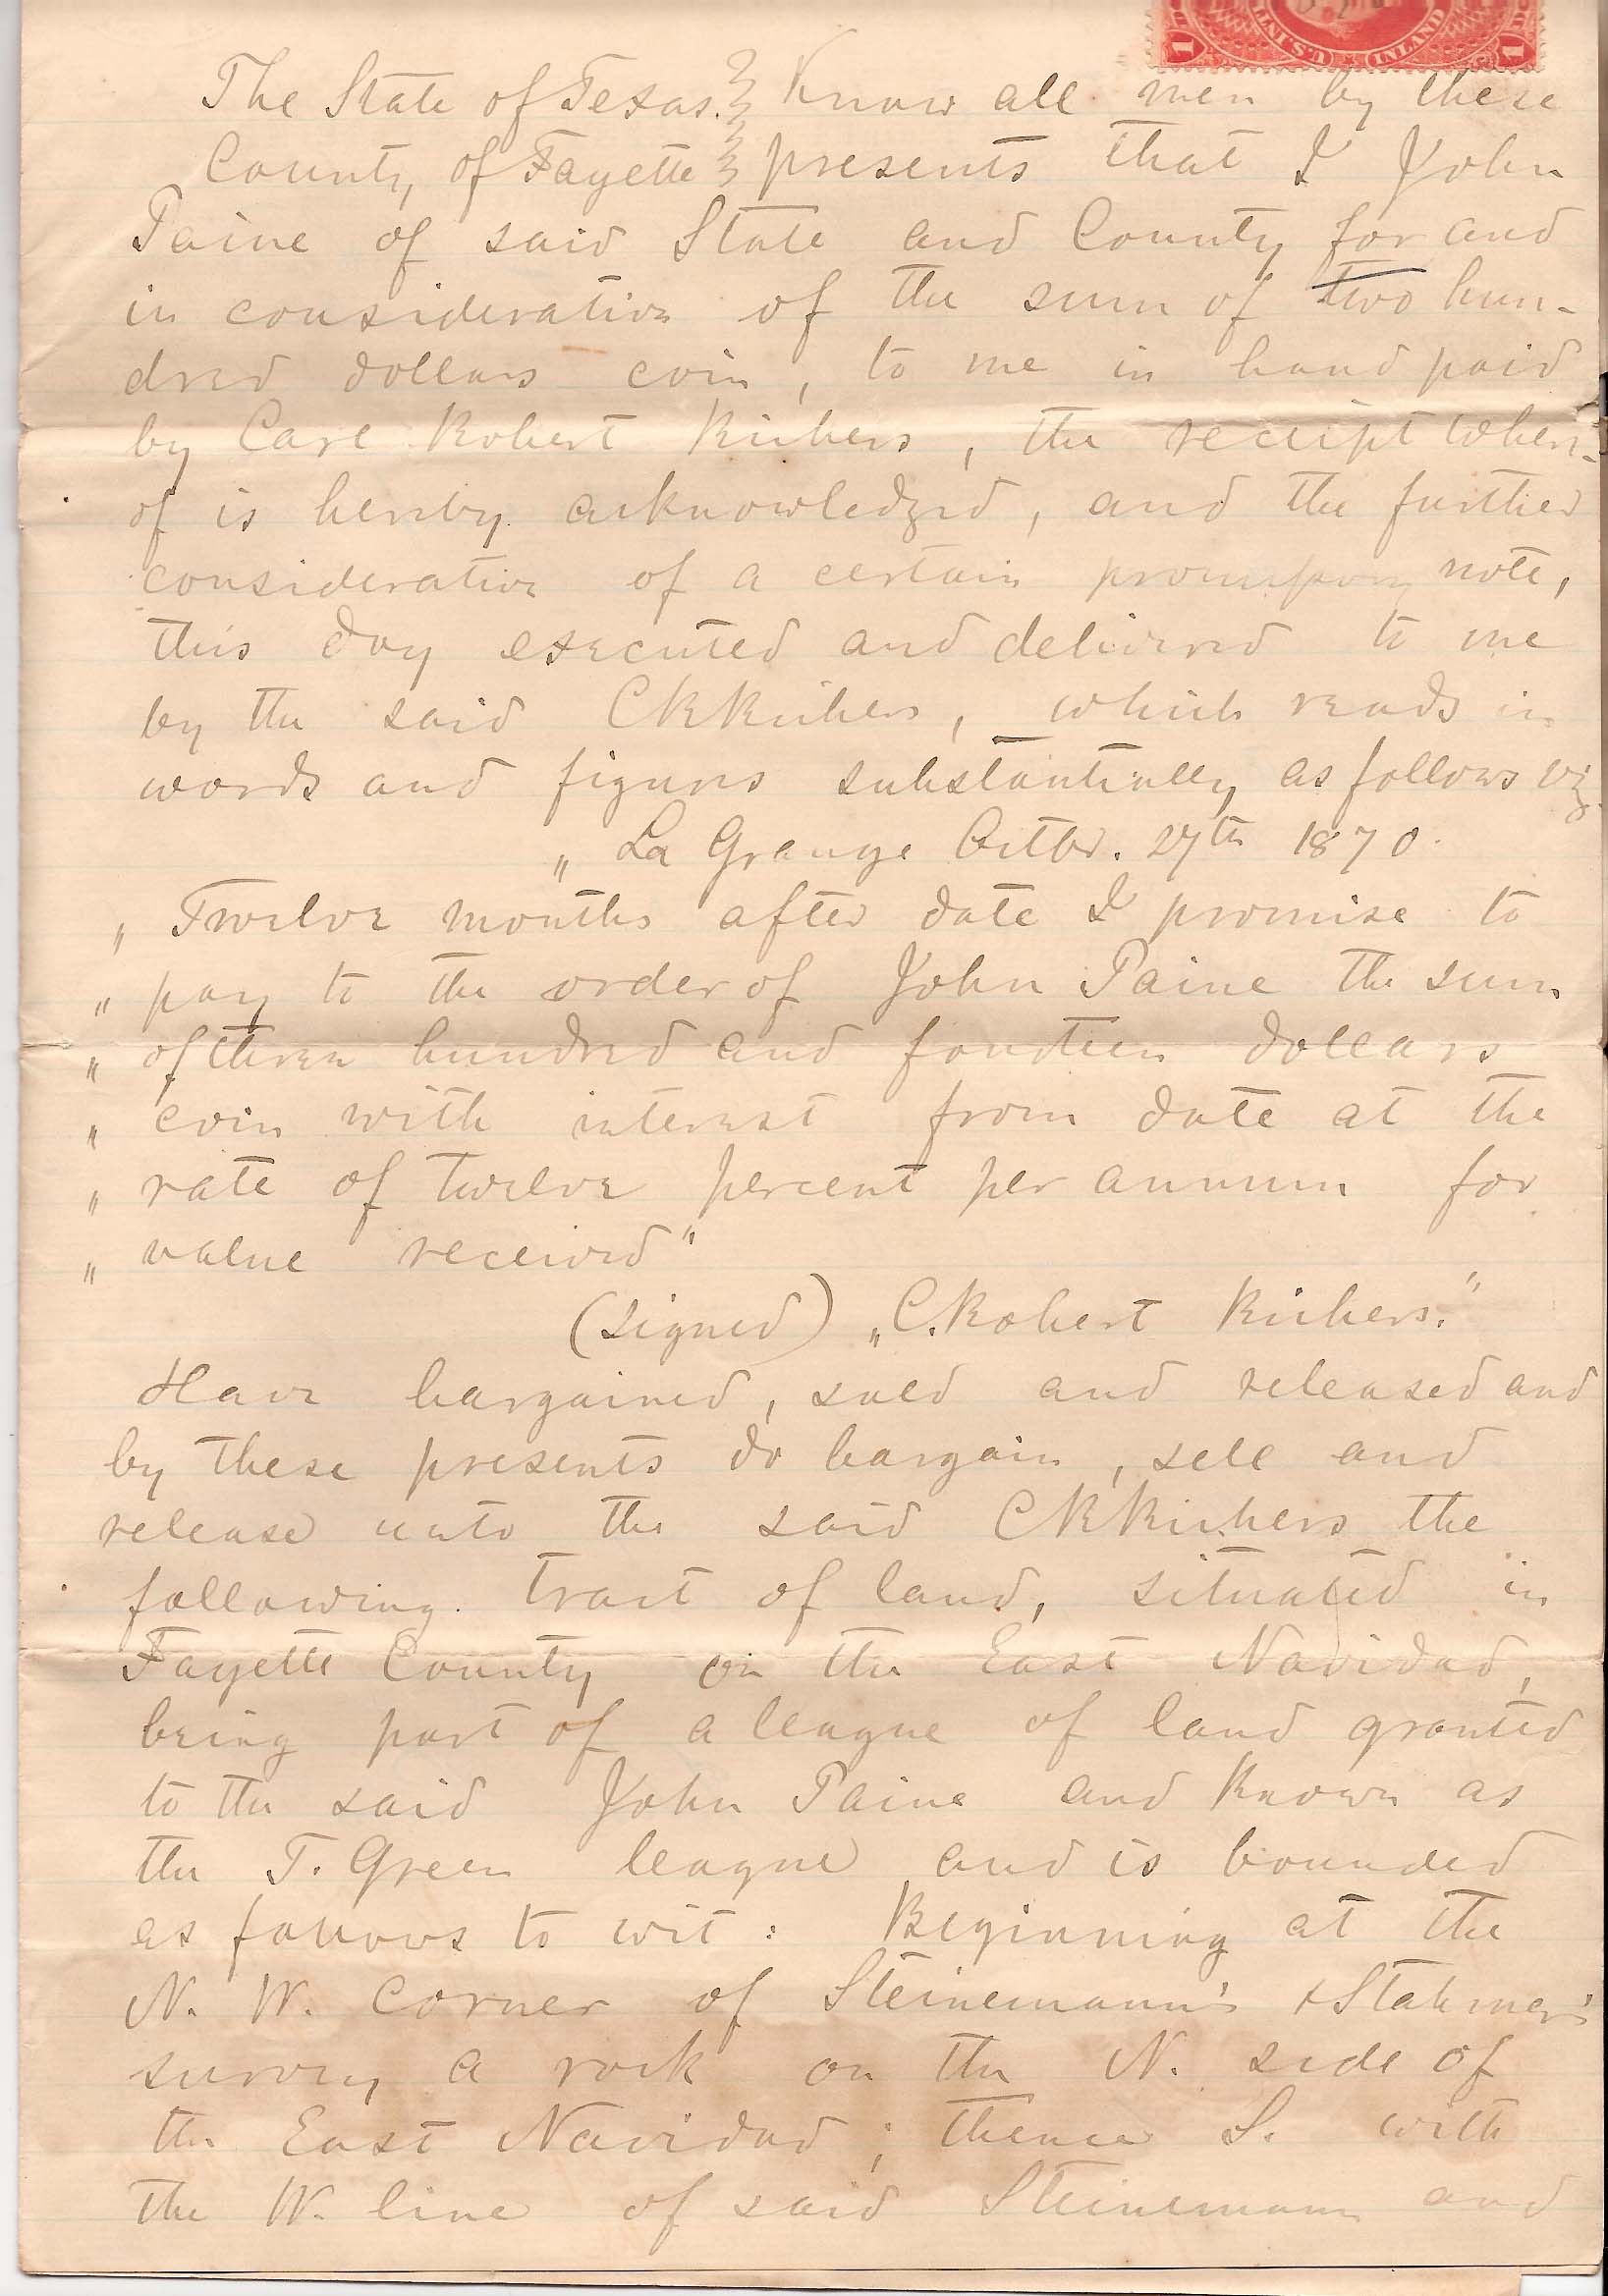 1 U.S. INT INLAND 1
The State of Texas. } Know all men by these
County of Fayette } presents that I John
Paine of said State and County for and
in consideration of the sum of two hun-
dred dollars coin, to me in hand paid
by Carl Robert Richers, the receipt wher-
of is hereby acknowledged, and the further
consideration of a certain promissory note,
this day executed and delivered to me
by the said CRRichers, which reads in
words and figures substantially as follows viz.
„ La Grange Octbr. 27th 1870.
„ Twelve months after date I promise to
„ pay to the order of John Paine the sum
„ of three hundred and fourteen dollars
„ coin with interest from date at the
„ rate of twelve percent per annum for
„ value received"
(signed) „C. Robert Richers."
Have bargained, sold and released and
by these presents do bargain, sell and
release unto the said CRRichers the
following tract of land, situated in
Fayette County on the East Navidad,
being part of a league of land granted
to the said John Paine and known as
the T. Green league and is bounded
as follows to wit: Beginning at the
N. W. corner of Steinemann's &
survey a rock on the N. side of
the East Navidad; thence S. with
the W. line of said Steinemann and